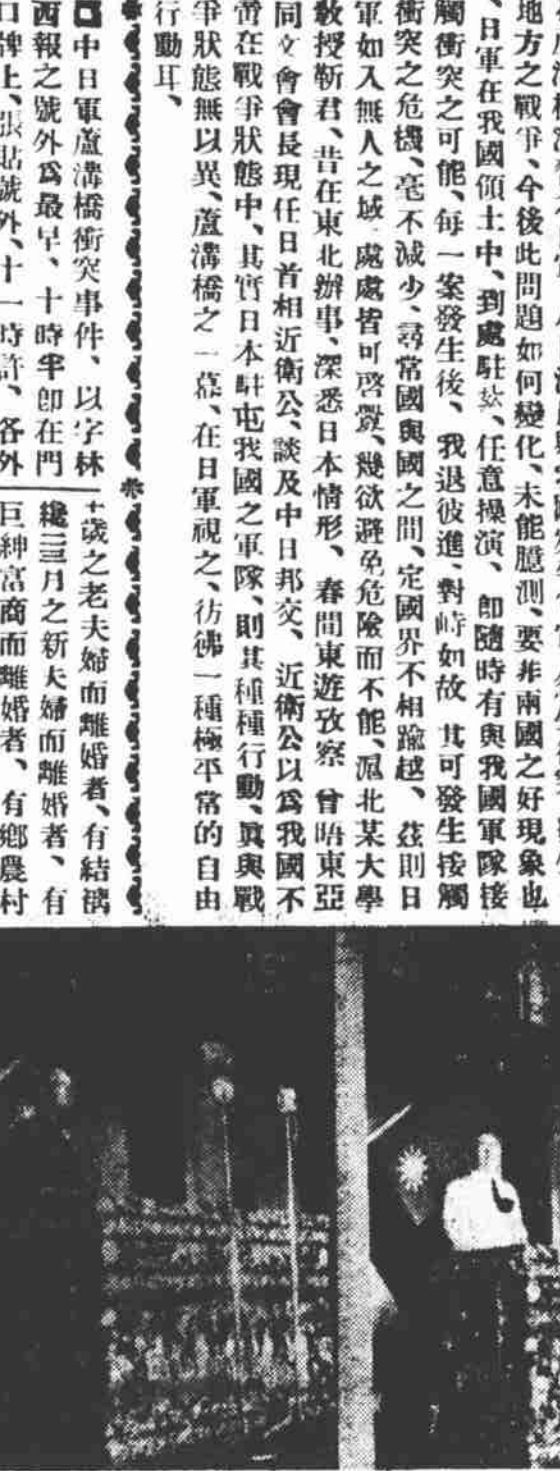 地方之戰爭、今後此問題如何變化、未能臆測、要非兩國之好現象也
、日軍在我國領土中、到處駐紮、任意操演、卽隨時有與我國軍隊接
觸衝突之可能、每一案發生後、我退彼進、對峙如故 其可發生接觸
衝突之危機、毫不減少、尋常國與國之間、定國界不相踰越、茲則日
軍如入無人之域 處處皆可啓釁、幾欲避免危險而不能、滬北某大學
敎授靳君、昔在東北辦事、深悉日本情形、春間東遊攷察 曾晤東亞
同文會會長現任日首相近衛公、談及中日邦交、近衛公以爲我國不
啻在戰爭狀態中、其實日本駐屯我國之軍隊、則其種種行動、眞與戰
爭狀態無以異、蘆溝橋之一幕、在日軍視之、彷彿一種極平常的自由
行動耳、
中日軍蘆溝橋衝突事件、以字林
西報之號外爲最早、十時半卽在門
口牌上、張貼號外、十一時許、各外
十歲之老夫婦而離婚者、有結褵
纔三月之新夫婦而離婚者、有
巨紳富商而離婚者、有鄉農村